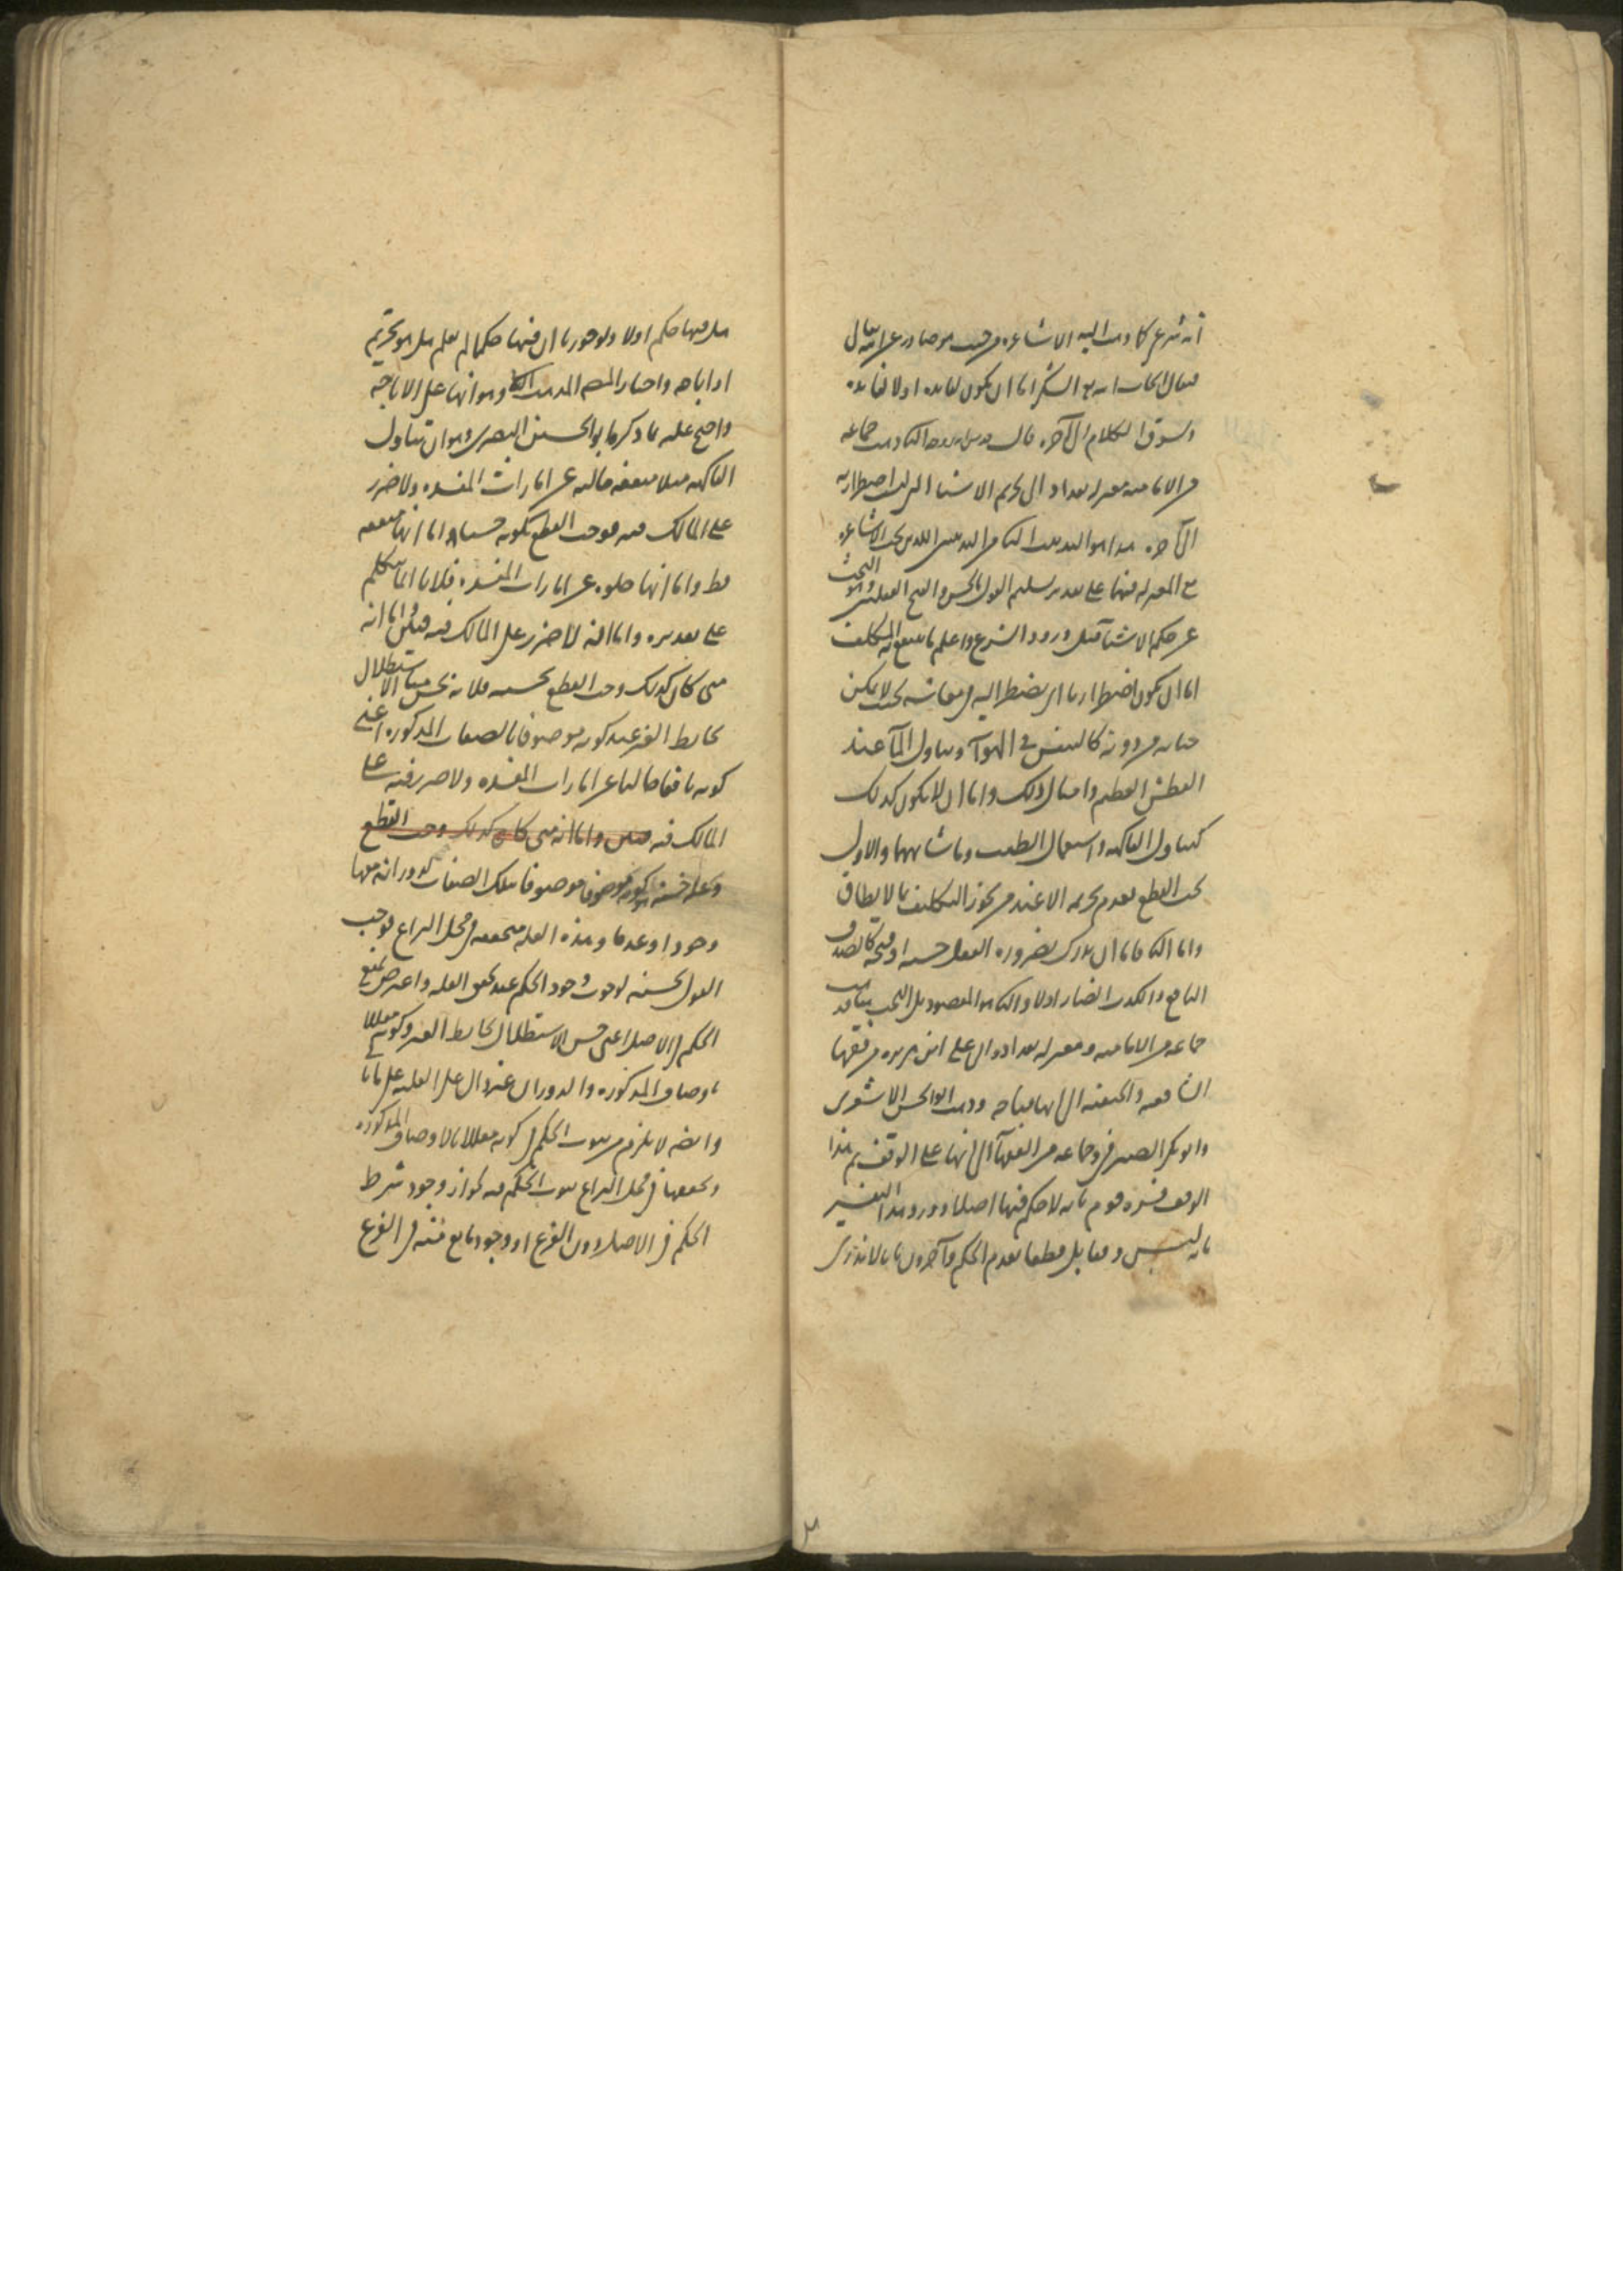 انه شرعي كما ذهب اليه الاشاعره من حيث هو صادر عن الله تعالى
فيقال ايجاب الله تع الشكر اما ان يكون لفايده او لا لفايده
ويسوق الكلام الى آخره قال قدس الله روحه الثانى ذهب جماعه
من الاماميه ومعتزله بغداد الى تحريم الاشيا التى ليست اضطراريه
الى آخره هذا هو المذهب الثانى من المذهبين اللذين بحث الاشاعره
مع المعتزله فيهما على تقدير تسليم القول بالحسن والقبح العقليين وهو البحث
عن حكم الاشيآ قبل ورود الشرع واعلم ما ينتفع به المكلف
اما ان يكون اضطراريا اى يضطر اليه فى معاشه بحيث لا يمكن
حياته من دونه كالتنفس فى الهوآ وتناول المآ عند
العطش العظيم وامثال ذلك واما ان لا يكون كذلك
كتناول الفاكهه واستعمال الطيب وما شابههما والاول
يجب القطع بعدم تحريمه الا عند من يجوز التكليف بما لا يطاق
واما الثانى فاما ان يدرك بضروره العقل حسنه او قبحه كالصدق
النافع والكذب الضار اولا والثانى هو المقصود بالبحث هنا فذهب
جماعه من الاماميه ومعتزله بغداد وابو على ابن ابى هريره من فقها
الشافعيه والحنفيه الى انها مباحه وذهب ابو الحسن الاشعرى
وابو بكر الصيرفى وجماعه من الفقهآ الى انها على الوقف ثم هذا
الوقف فسره قوم بانه لا حكم فيها اصلا ورد هذا التفسير
بانه ليس وقفا بل قطعا بعدم الحكم وآخرون بانا لا ندرى
هل فيها حكم اولا ولو جوزنا ان فيها حكما لم نعلم هل هو تحريم
او اباحه واختار المصنف المذهب الثانى وهو انها على الاباحه
واحتج عليه بما ذكره ابو الحسين البصرى وهو ان تناول
الفاكهه مثلا منفعه خاليه عن امارات المفسده ولا ضرر
على المالك فيه فوجب القطع بكونه حسنا اما انها منفعه
فظ واما انها خلوه عن امارات المفسده فلانا انما نتكلم
على تقديره واما انه لا ضرر على المالك فيه فبين واما انه
متى كان كذلك وجب القطع بحسنه فلانه يحسن منا الاستظلال
بحايط الغير عند كونه موصوفا بالصفات المذكوره اعنى
كونه نافعا خاليا عن امارات المفسده ولا ضرر فيه على
المالك فيه فبين واما انه متى كان كذلك وجب القطع
وعله حسنه كونه موصوفا بتلك الصفات لدورانه معها
وجودا وعدما وهذه العله متحققه فى محل النزاع فوجب
القول بحسنه لوجوب وجود الحكم عند تحقق العله واعترض بمنع
الحكم فى الاصل اعنى حسن الاستظلال بحايط الغير وكونه معللا
باوصاف المذكوره والدوران غير دال على العليه على ما ياتى
وايضه لا يلزم من ثبوت الحكم فى كونه معللا بالاوصاف المذكوره
وتحققها فى محل النزاع ثبوت الحكم فيه لجواز وجود شرط
الحكم فى الاصل دون الفرع او وجود مانع منه فى الفرع